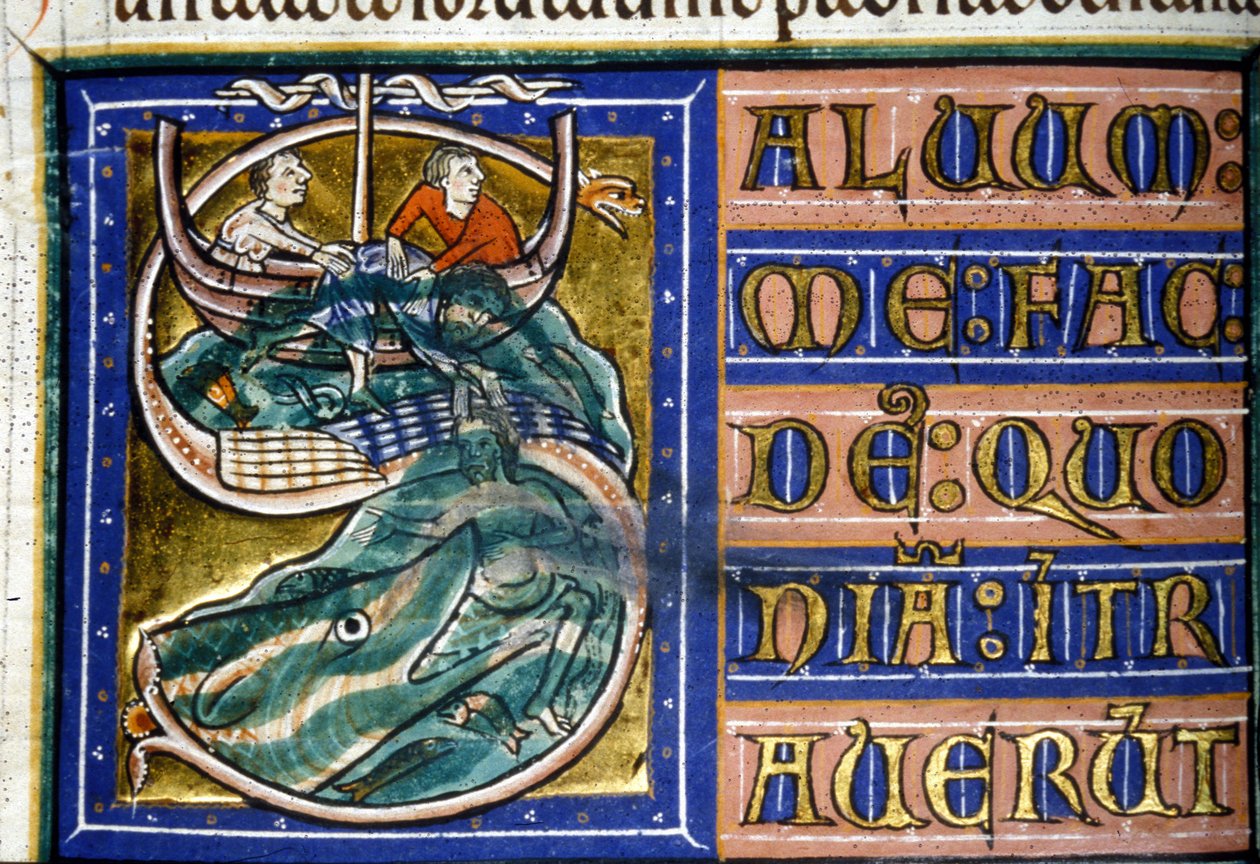 SALUUM:
ME:FAC:
DE̅:QUO
NIA̅:I̅TR
AUERU̅T